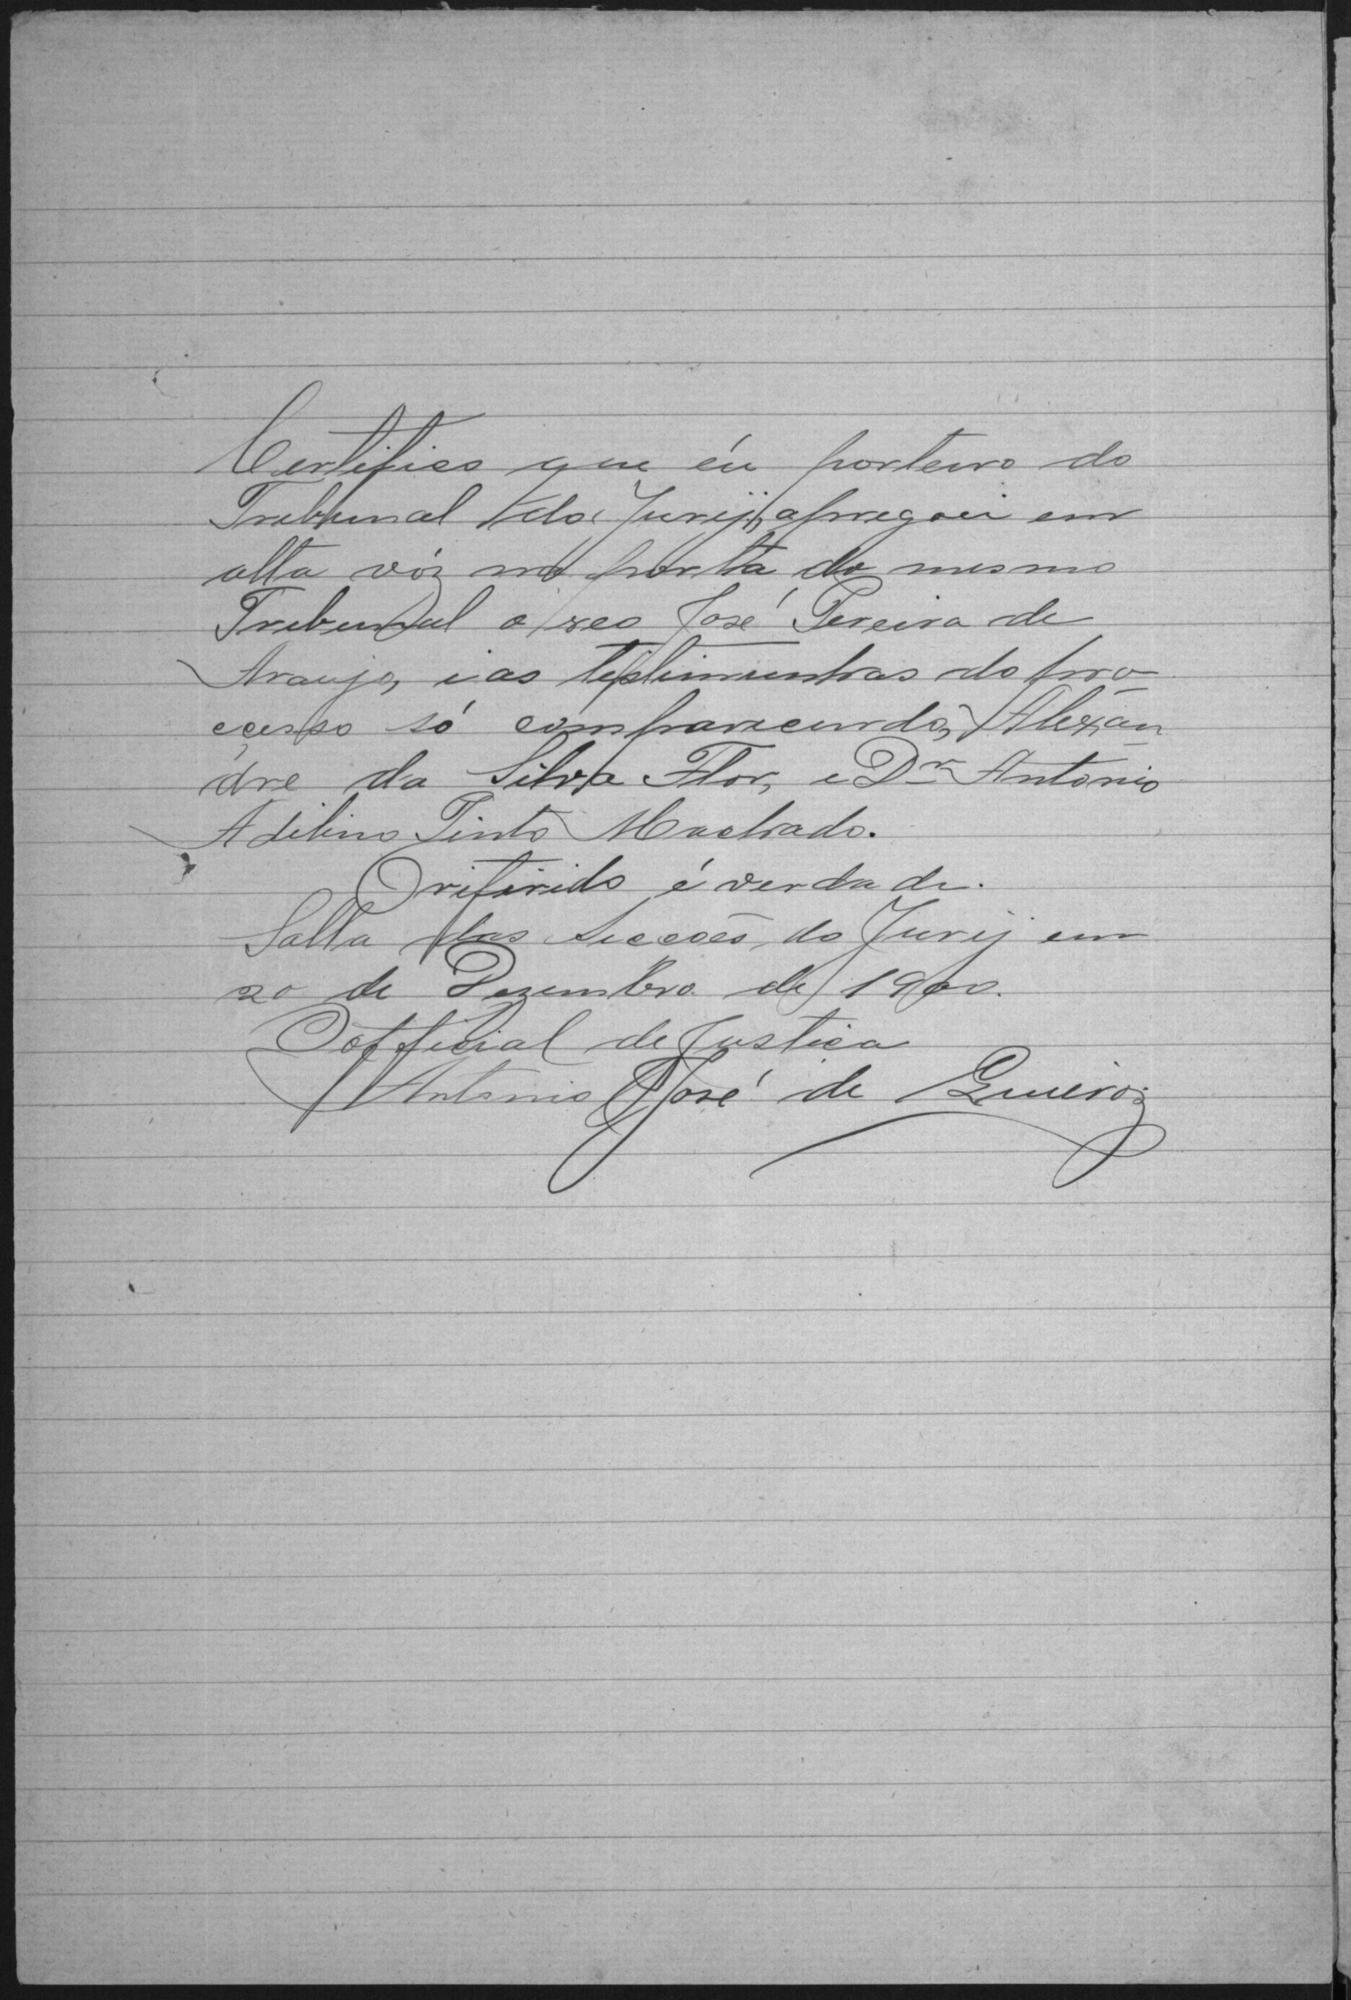 Certifico que éu porteiro do
Tribunal do Jurij, apregoei em
alta vóz na porta do mesmo
Tribunal o reo José Pereira de
Araujo, i as testimunhas do pro
cesso só comparecendo, Alexan
dre da Silva Flor, e Dr. Antonio
Adelino Pinto Machado.
O rifirido é verdade.
Salla das Secçoes do Jurij em
20 de Dezembro de 1900.
O official de Justica
Antonio José de Queiroz